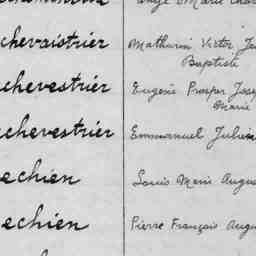 ange Marie Char
chevaistrier Mathurin Victor Je
Baptiste
chevestrier Eugène Prosper Jose
Marie
chevestrier Emmanuel Julien
echien Louis Marie Augus
echien Pierre François Augu